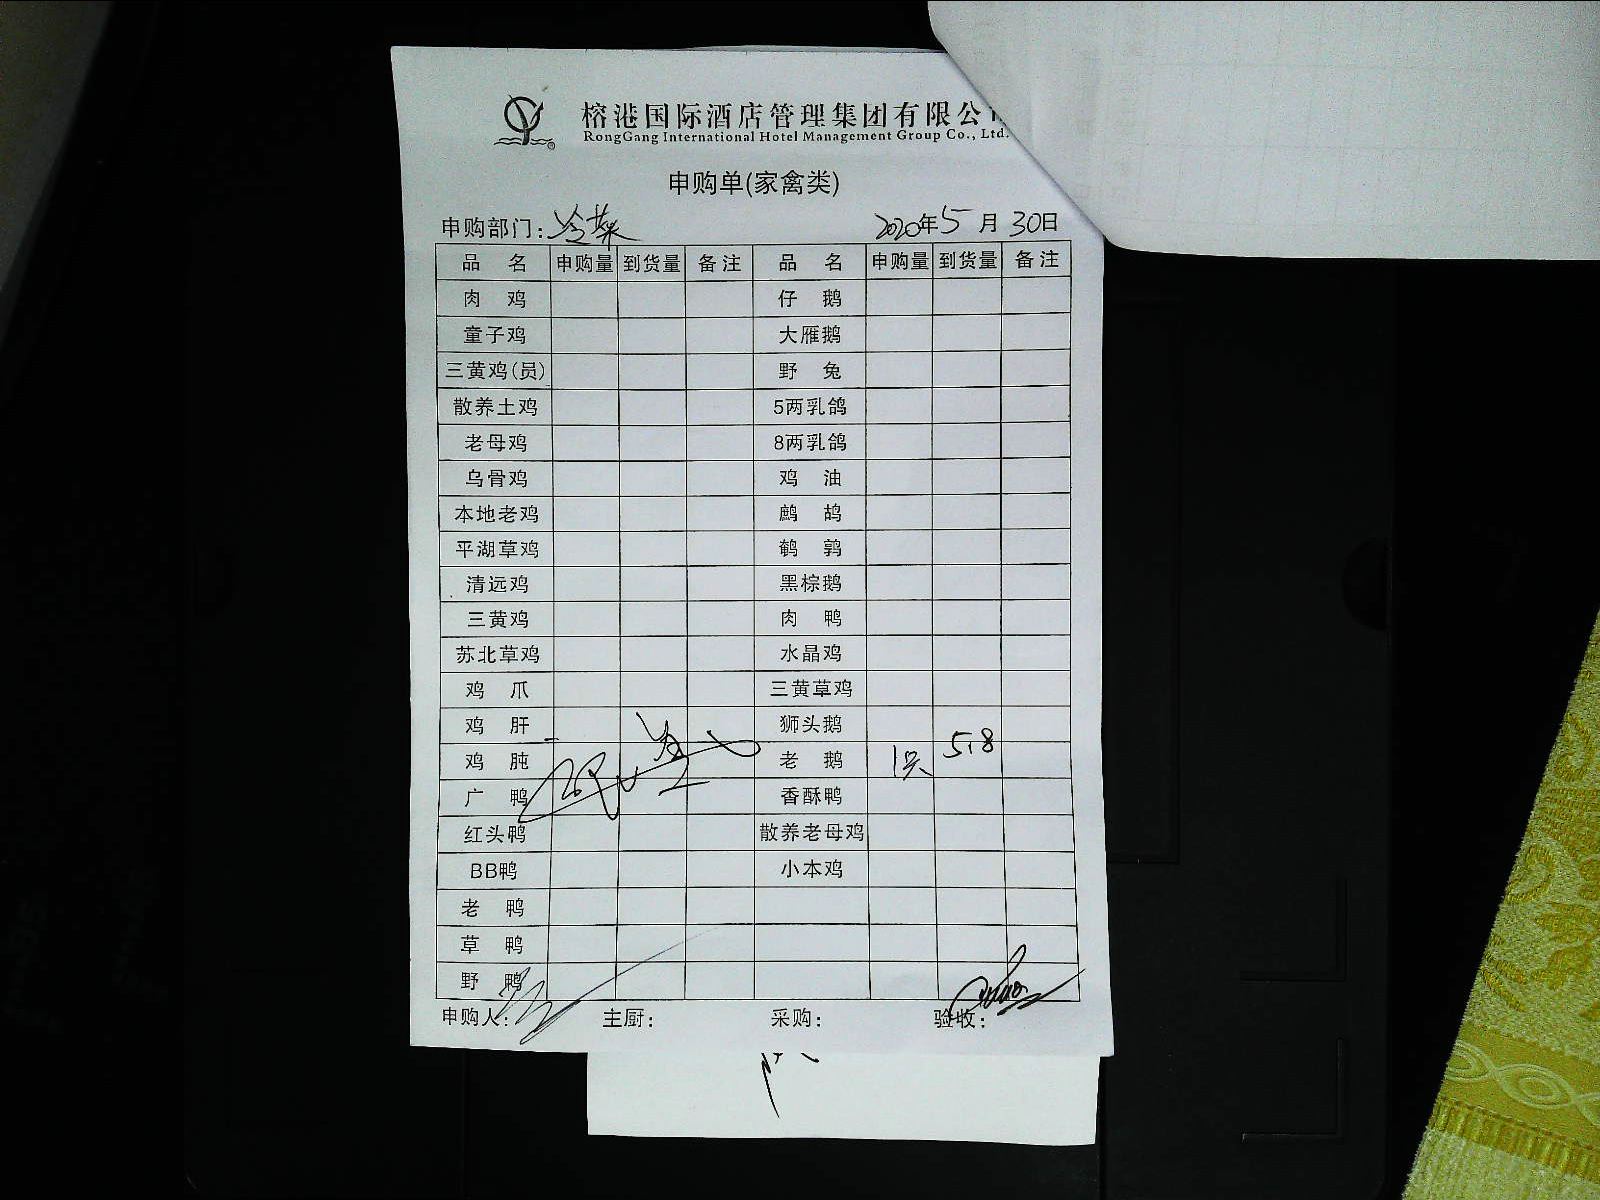 榕港国际酒店管理集团有限公
RongGang International Hotel Management Group Co., Ltd.
申购单(家禽类)
申购部门:冷菜 2020年5月30日
品 名 申购量 到货量 备注 品 名 申购量 到货量 备注
肉 鸡 仔 鹅
童子鸡 大雁鹅
三黄鸡(员) 野 兔
散养土鸡 5两乳鸽
老母鸡 8两乳鸽
乌骨鸡 鸡 油
本地老鸡 鹧 鸪
平湖草鸡 鹌 鹑
清远鸡 黑棕鹅
三黄鸡 肉 鸭
苏北草鸡 水晶鸡
鸡 爪 三黄草鸡
鸡 肝 狮头鹅
鸡 肫 老 鹅 1只 5.8
广 鸭 香酥鸭
红头鸭 散养老母鸡
BB鸭 小本鸡
老 鸭
草 鸭
野 鸭
申购人: 主厨: 采购: 验收: